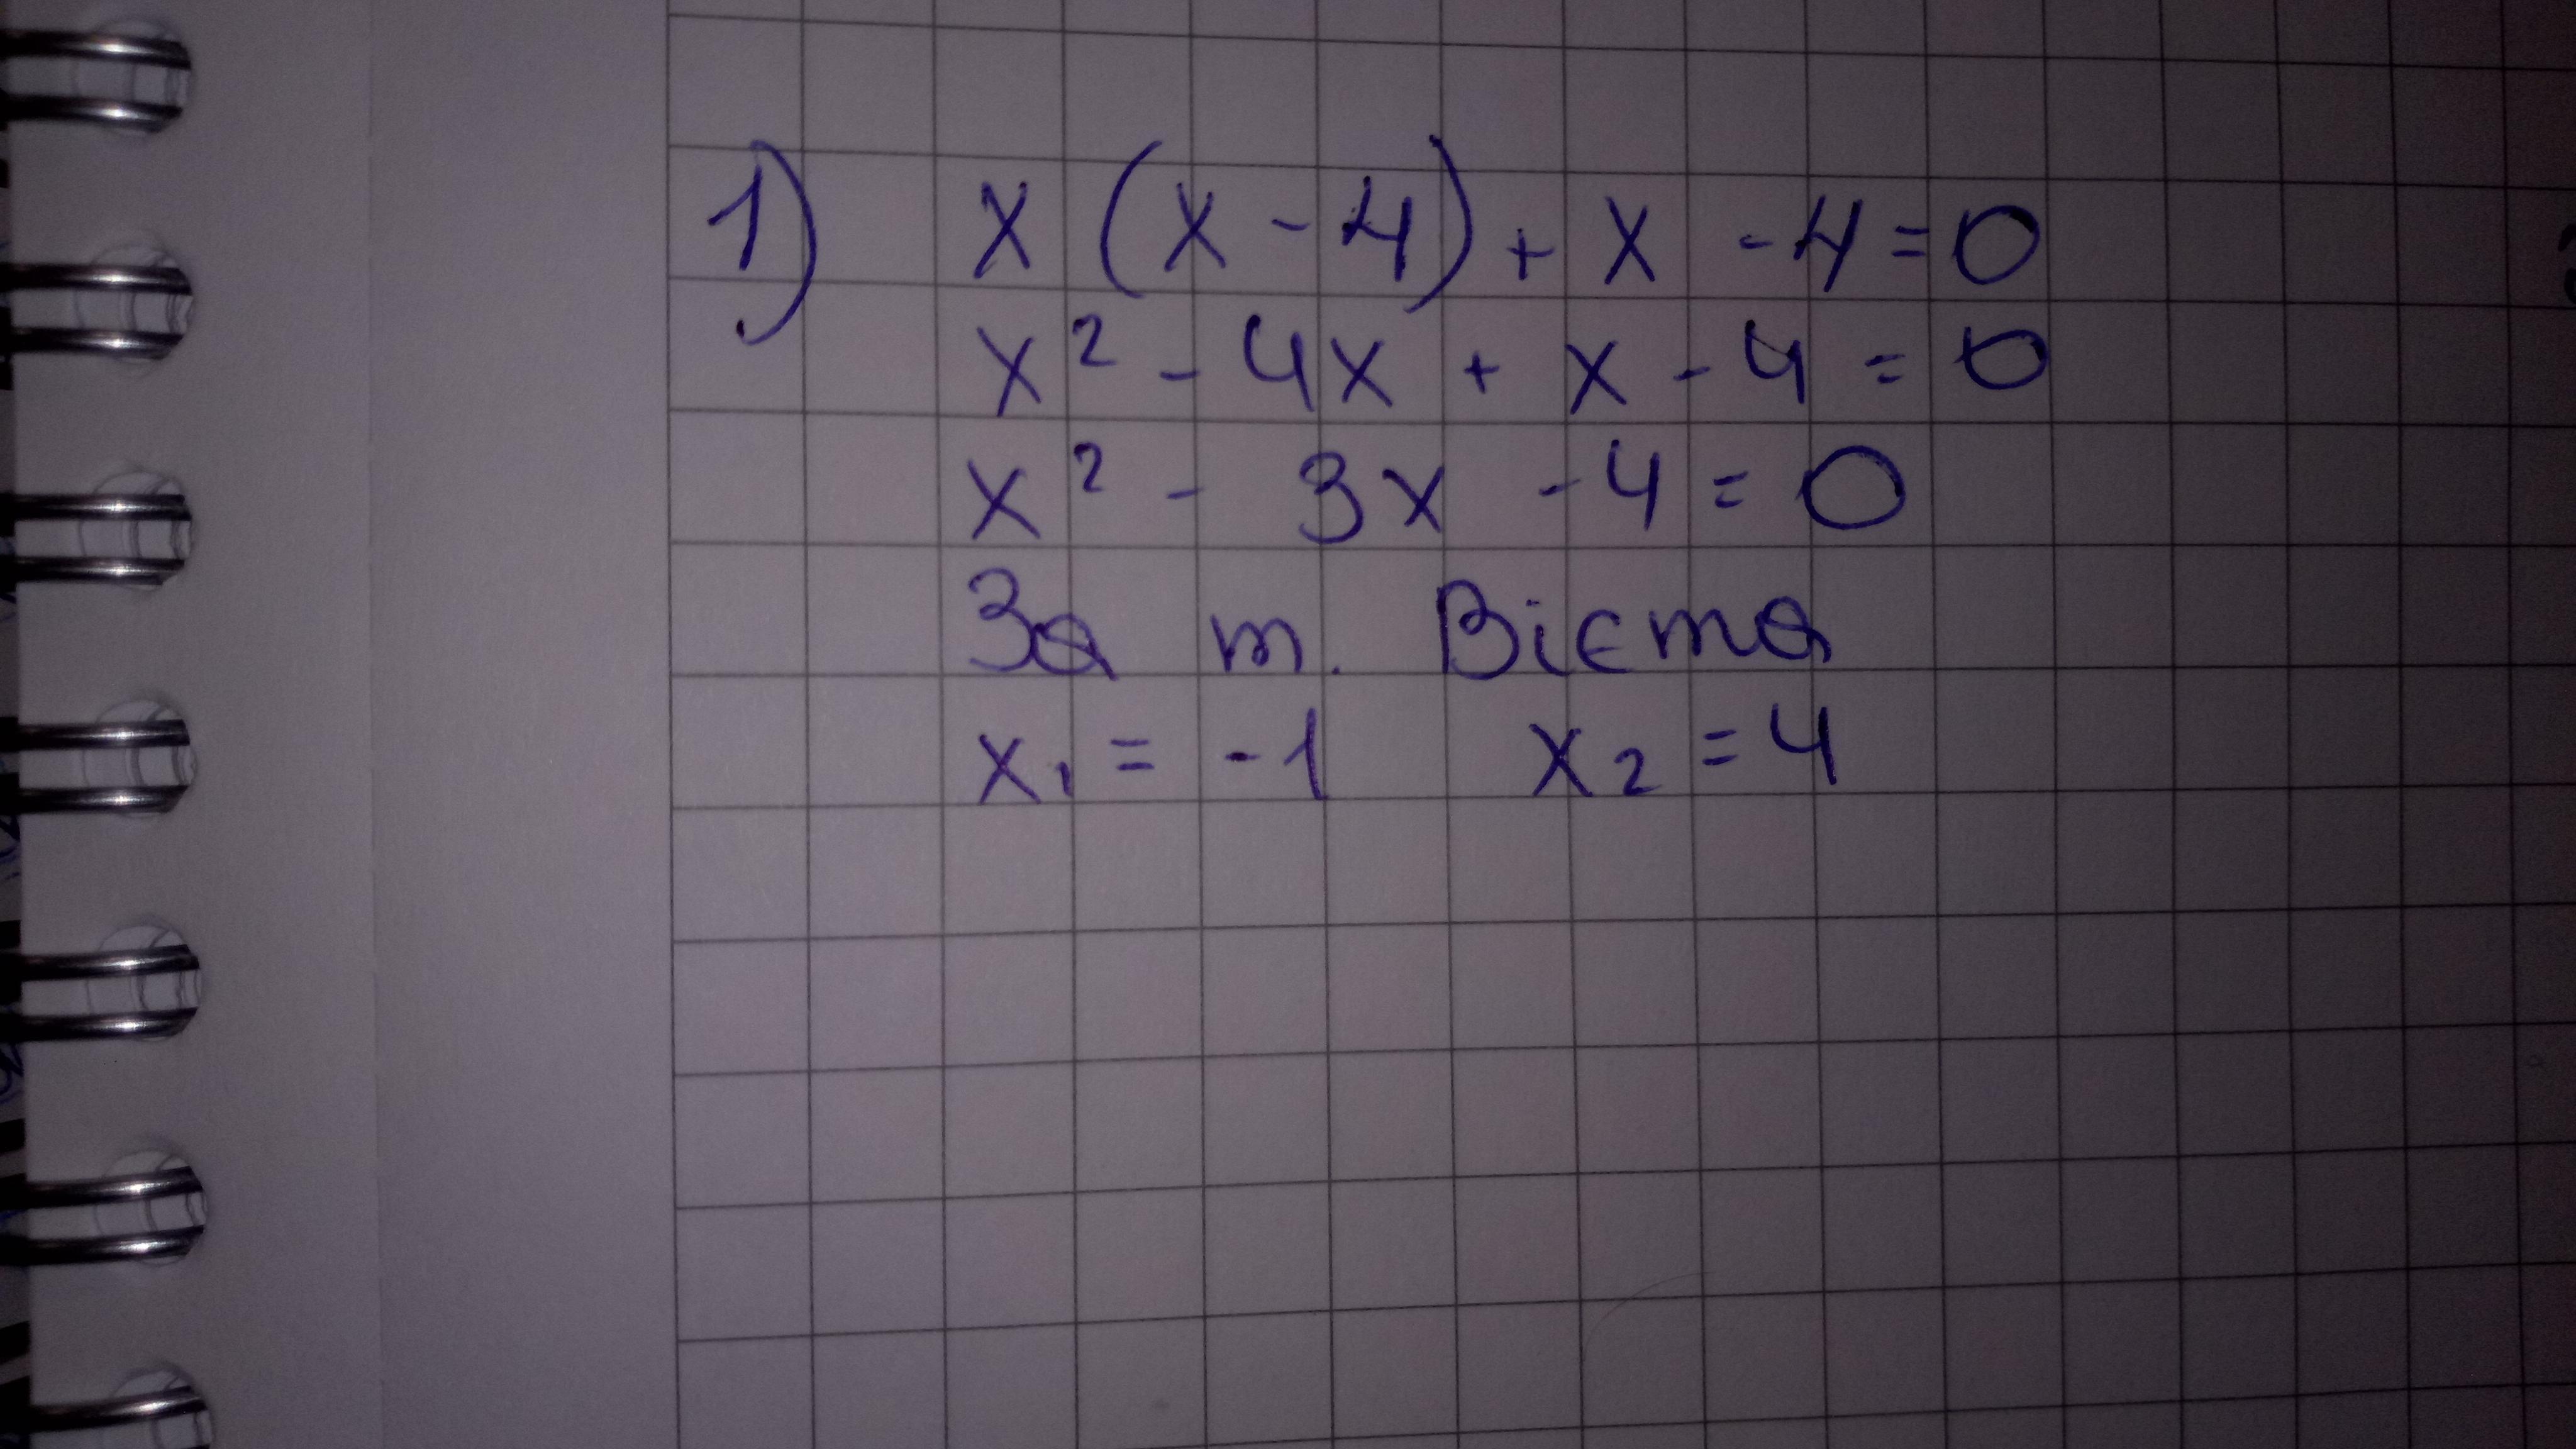 1) x (x - 4) + x - 4 = 0
x² - 4x + x - 4 = 0
x² - 3x - 4 = 0
За т. Вієта
x₁ = -1 x₂ = 4